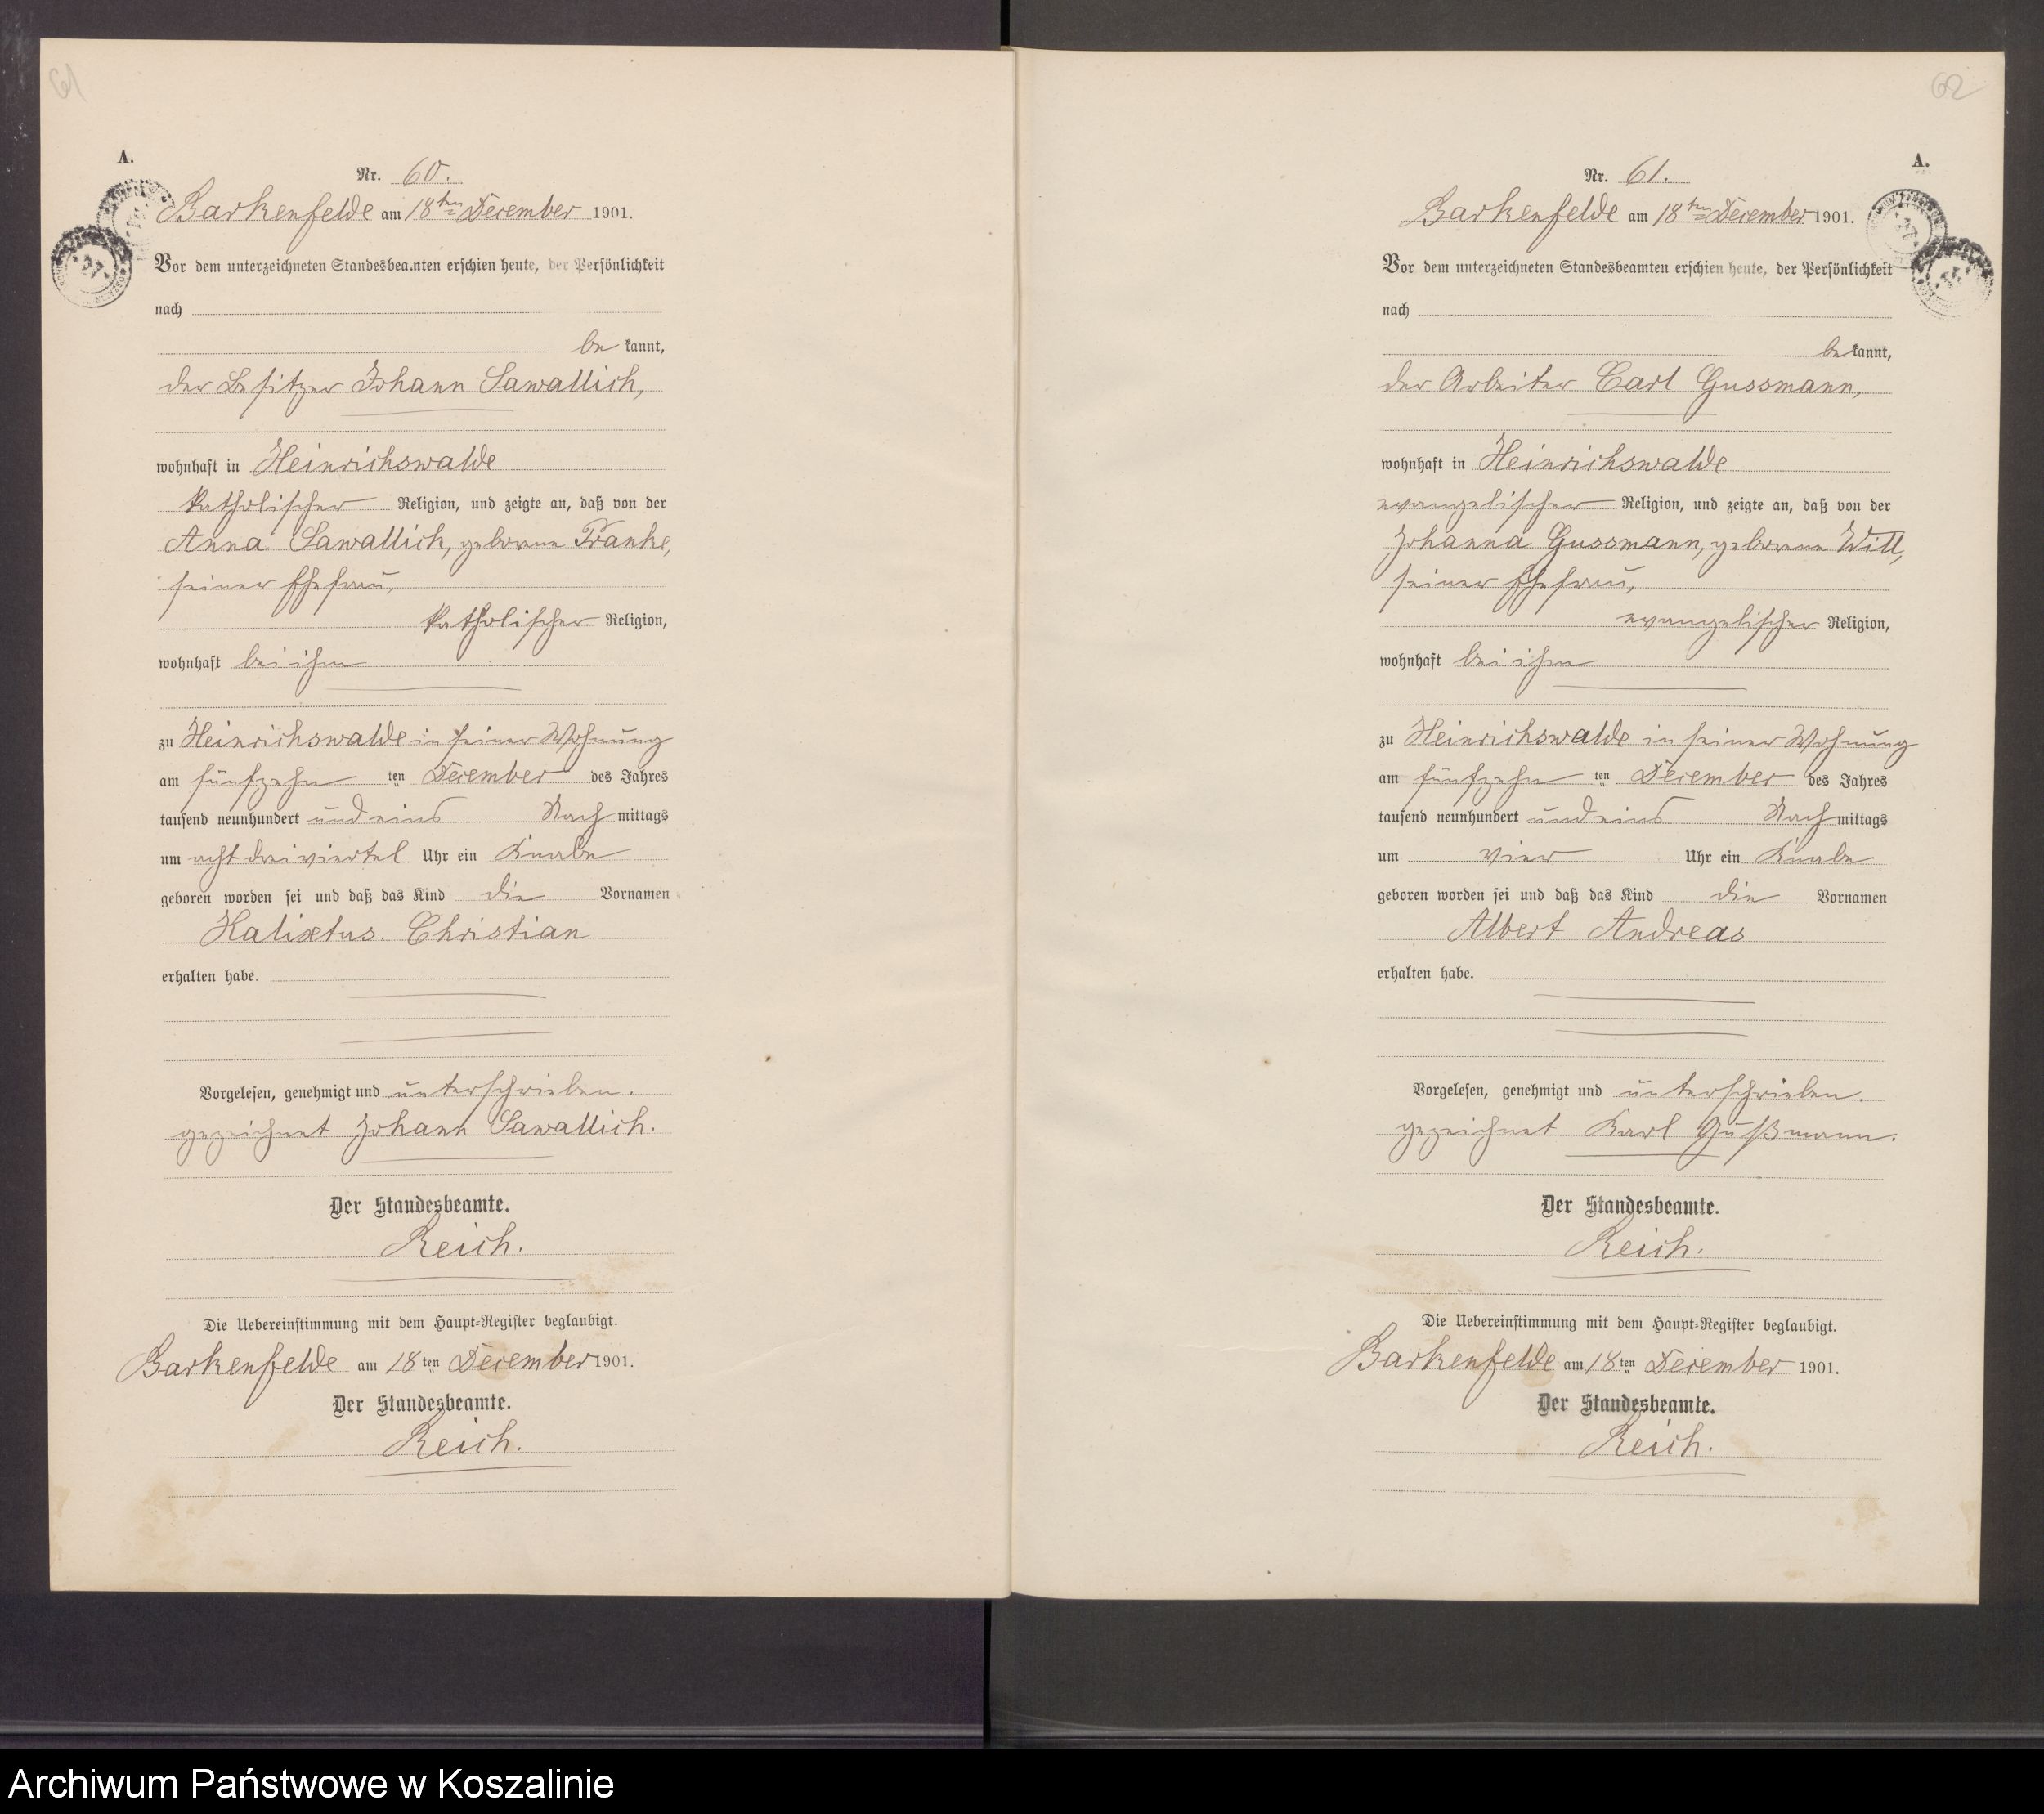 61
A.
Nr. 60.
Barkenfelde am 18ten December 1901.
Vor dem unterzeichneten Standesbeamten erschien heute, der Persönlichkeit
nach
bekannt,
der Besitzer Johann Sawallich,
wohnhaft in Heinrichswalde
katholischer Religion, und zeigte an, daß von der
Anna Sawallich, geborene Franke,
seiner Ehefrau,
katholischer Religion,
wohnhaft bei ihm
zu Heinrichswalde in seiner Wohnung
am fünfzehn ten December des Jahres
tausend neunhundert und eins Nachmittags
um acht dreiviertel Uhr ein Knabe
geboren worden sei und daß das Kind die Vornamen
Kalixtus Christian
erhalten habe.
Vorgelesen, genehmigt und unterschrieben.
gezeichnet Johann Sawallich.
Der Standesbeamte.
Reich.
Die Uebereinstimmung mit dem Haupt-Register beglaubigt.
Barkenfelde am 18ten December 1901.
Der Standesbeamte.
Reich.
62
A.
Nr. 61.
Barkenfelde am 18ten December 1901.
Vor dem unterzeichneten Standesbeamten erschien heute, der Persönlichkeit
nach
bekannt,
der Arbeiter Carl Gussmann,
wohnhaft in Heinrichswalde
evangelischer Religion, und zeigte an, daß von der
Johanna Gussmann, geborene Will,
seiner Ehefrau,
evangelischer Religion,
wohnhaft bei ihm
zu Heinrichswalde in seiner Wohnung
am fünfzehn ten December des Jahres
tausend neunhundert und eins Nachmittags
um vier Uhr ein Knabe
geboren worden sei und daß das Kind die Vornamen
Albert Andreas
erhalten habe.
Vorgelesen, genehmigt und unterschrieben.
gezeichnet Karl Gußmann.
Der Standesbeamte.
Reich.
Die Uebereinstimmung mit dem Haupt-Register beglaubigt.
Barkenfelde am 18ten December 1901.
Der Standesbeamte.
Reich.
Archiwum Państwowe w Koszalinie